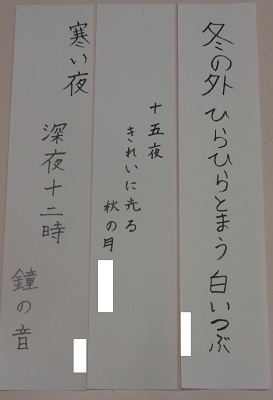 冬の外 ひらひらとまう 白いつぶ
十五夜
きれいに光る
秋の月
寒い夜
深夜十二時
鐘の音